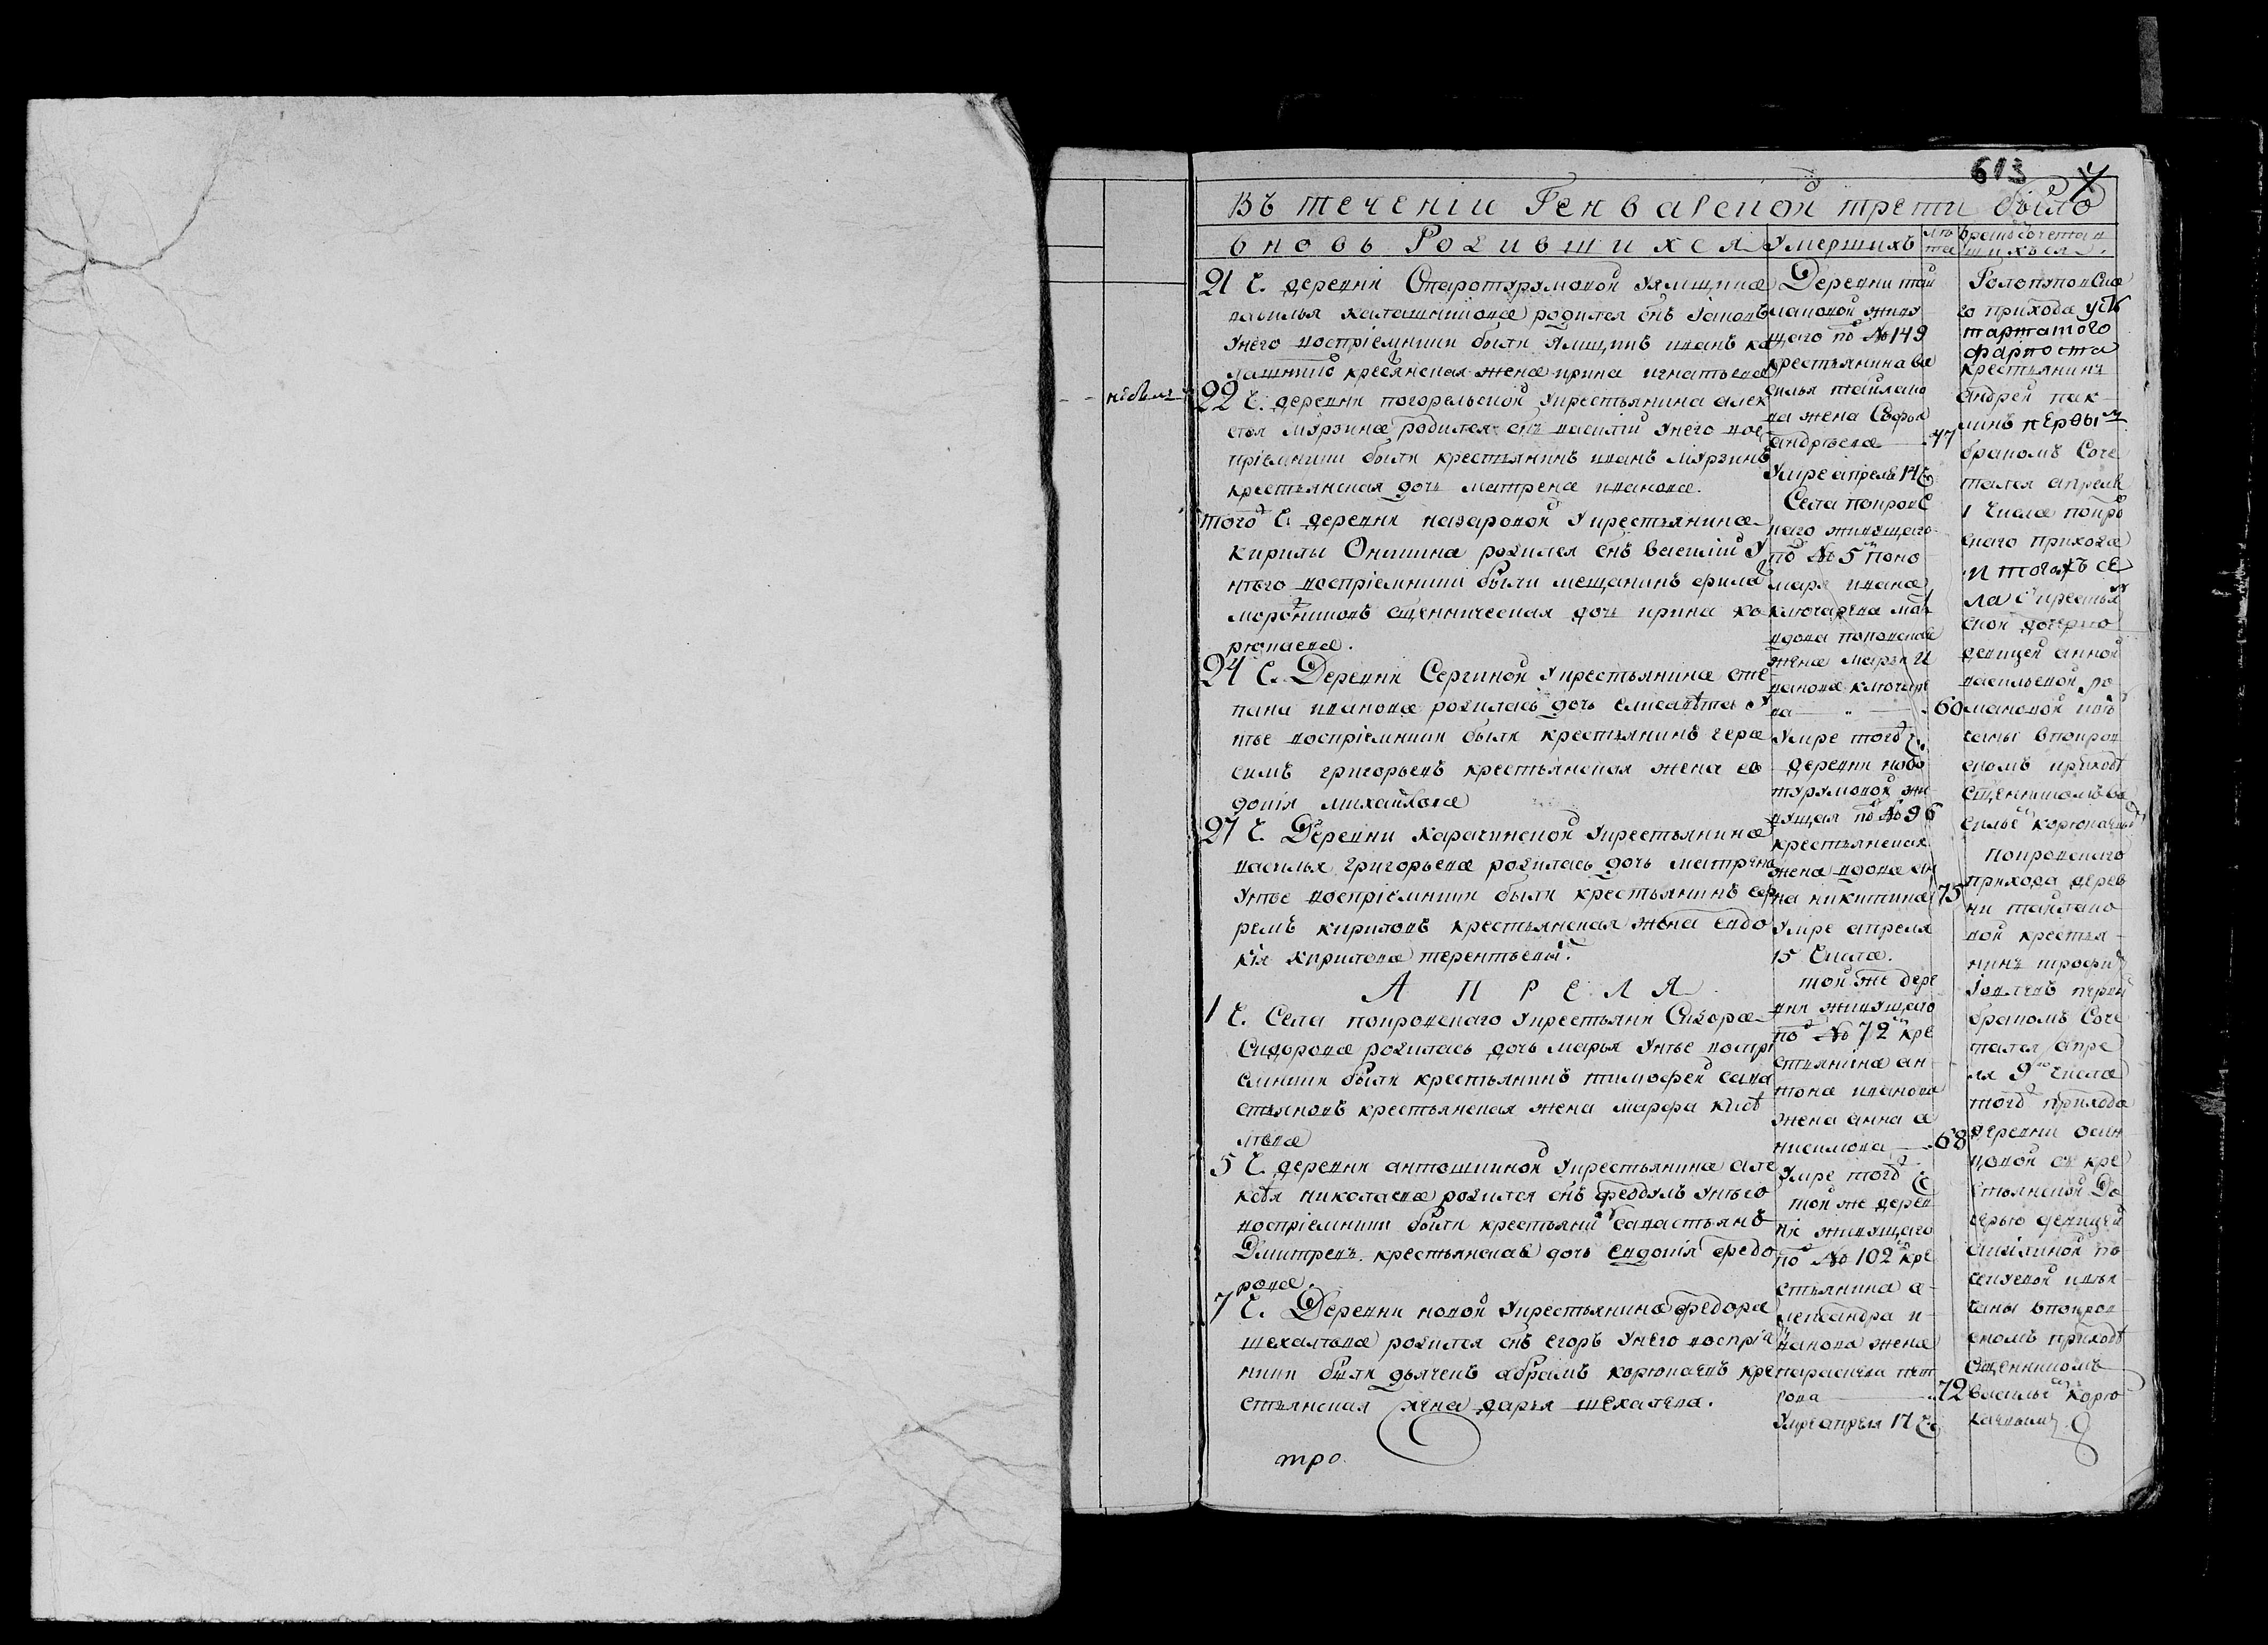 613
Въ теченіи Генварской трети было
вновь Родившихся
21 Ч. деревни Старотурумовой Уямщика
васильа калашникова родился снъ Іаковъ
Унего воспріемники были Ямщикъ иванъ ка
лашнико кресянская жена ирина игнатьева
22 Ч. деревни погорельской Укрестьянина алек
сея мурзина родился снъ василій Унего вос
пріемники были крестьянинъ иванъ мурзинъ
крестьянская дочь матрена иванова.
того Ч. деревни назаровой Укрестьянина
кирилы Онишина родился снъ василій У
нѣго воспріемники были мещанинъ
сщенническая дочь ирина ко
рюкаева.
24 Ч. Деревни Сергиной Укрестьянина сте
пана иванова родилась дочь елисавѣта У
нѣе воспріемники были крестьянинъ гера
симъ григорьевъ крестьянская жена ев
докія михайлова
27 Ч. Деревни Карачинской Укрестьянина
василья Григорьева родилась дочь матрена
Унѣе воспріемники были крестьянинъ еф
ремъ кириловъ крестьянская жена евдо
кія кирилова терентьева.
АПРЕЛЯ
1 Ч. Села покровскаго Укрестьяни Сидора
Сидорова родилась дочь марья Унѣе воспрі
емники были крестьянинъ тимофей сава
стьяновъ крестьянская жена марфа
5 Ч. деревни антошкиной Укрестьянина але
ксѣя николаева родился снъ феодулъ Унѣго
воспріемники были крестьяни савастьянъ
Дмитревъ крестьянская дочь евдокія федо
рова.
7 Ч. Деревни новой Укрестьянина федора
шехалѣва родился снъ егоръ Унего воспріе
ники были дьячекъ абрамъ корюкаевъ кре
стьянская жена дарья шехалева.
тро.
Умершихъ
лѣ
та
Деревни тай
лаковой живу
щаго по № 149
крестьянина ва
силья тайлако
ва жена Софья
андрѣева 77
Умре апреля 14 Ч
Села покровс
каго живущаго
по № 5 поно
маря ивана
ключарева мат
вдова поповская
жена марья и
ванова ключаре
ва 60
Умре того Ч.
деревни ново
турумовой жи
вущая по № 96
крестьянская
жена вдова ан
на никитина 75
Умре апреля
15 Числа.
той же дере
вни живущаго
по № 72 кре
стьянина ан
тона иванова
жена анна а
нисимова 68
Умре того Ч
той же дерев
ни живущаго
по № 102 кре
стьянина а
лександра и
ванова жена
парасковa пет
рова 72
Умре апреля 17 Ч
бракосочетав
шихъся.
го прихода усть
тартатого
фарпоста
крестьянинъ
андрей пак
линъ первы
бракомъ Соче
тался апреля
1 Числа покро
скаго прихода
и тогожъ се
ла с крестья
ской дочерью
девицей анной
васильевой ро
мановой
чаны впокров
скомъ приходѣ
сщенникомъ ва
сильемъ корюкаевы
покровскаго
прихода дерев
ни тайлако
вой крестья
нинъ трофи
Іовлевъ первы
бракомъ Соче
тался апре
ля 9 числа
того прихода
деревни осин
цовой съ кре
стьянской До
черью девицей
чаны впокров
скомъ приходѣ
сщенникомъ
василье корю
каевымъ.